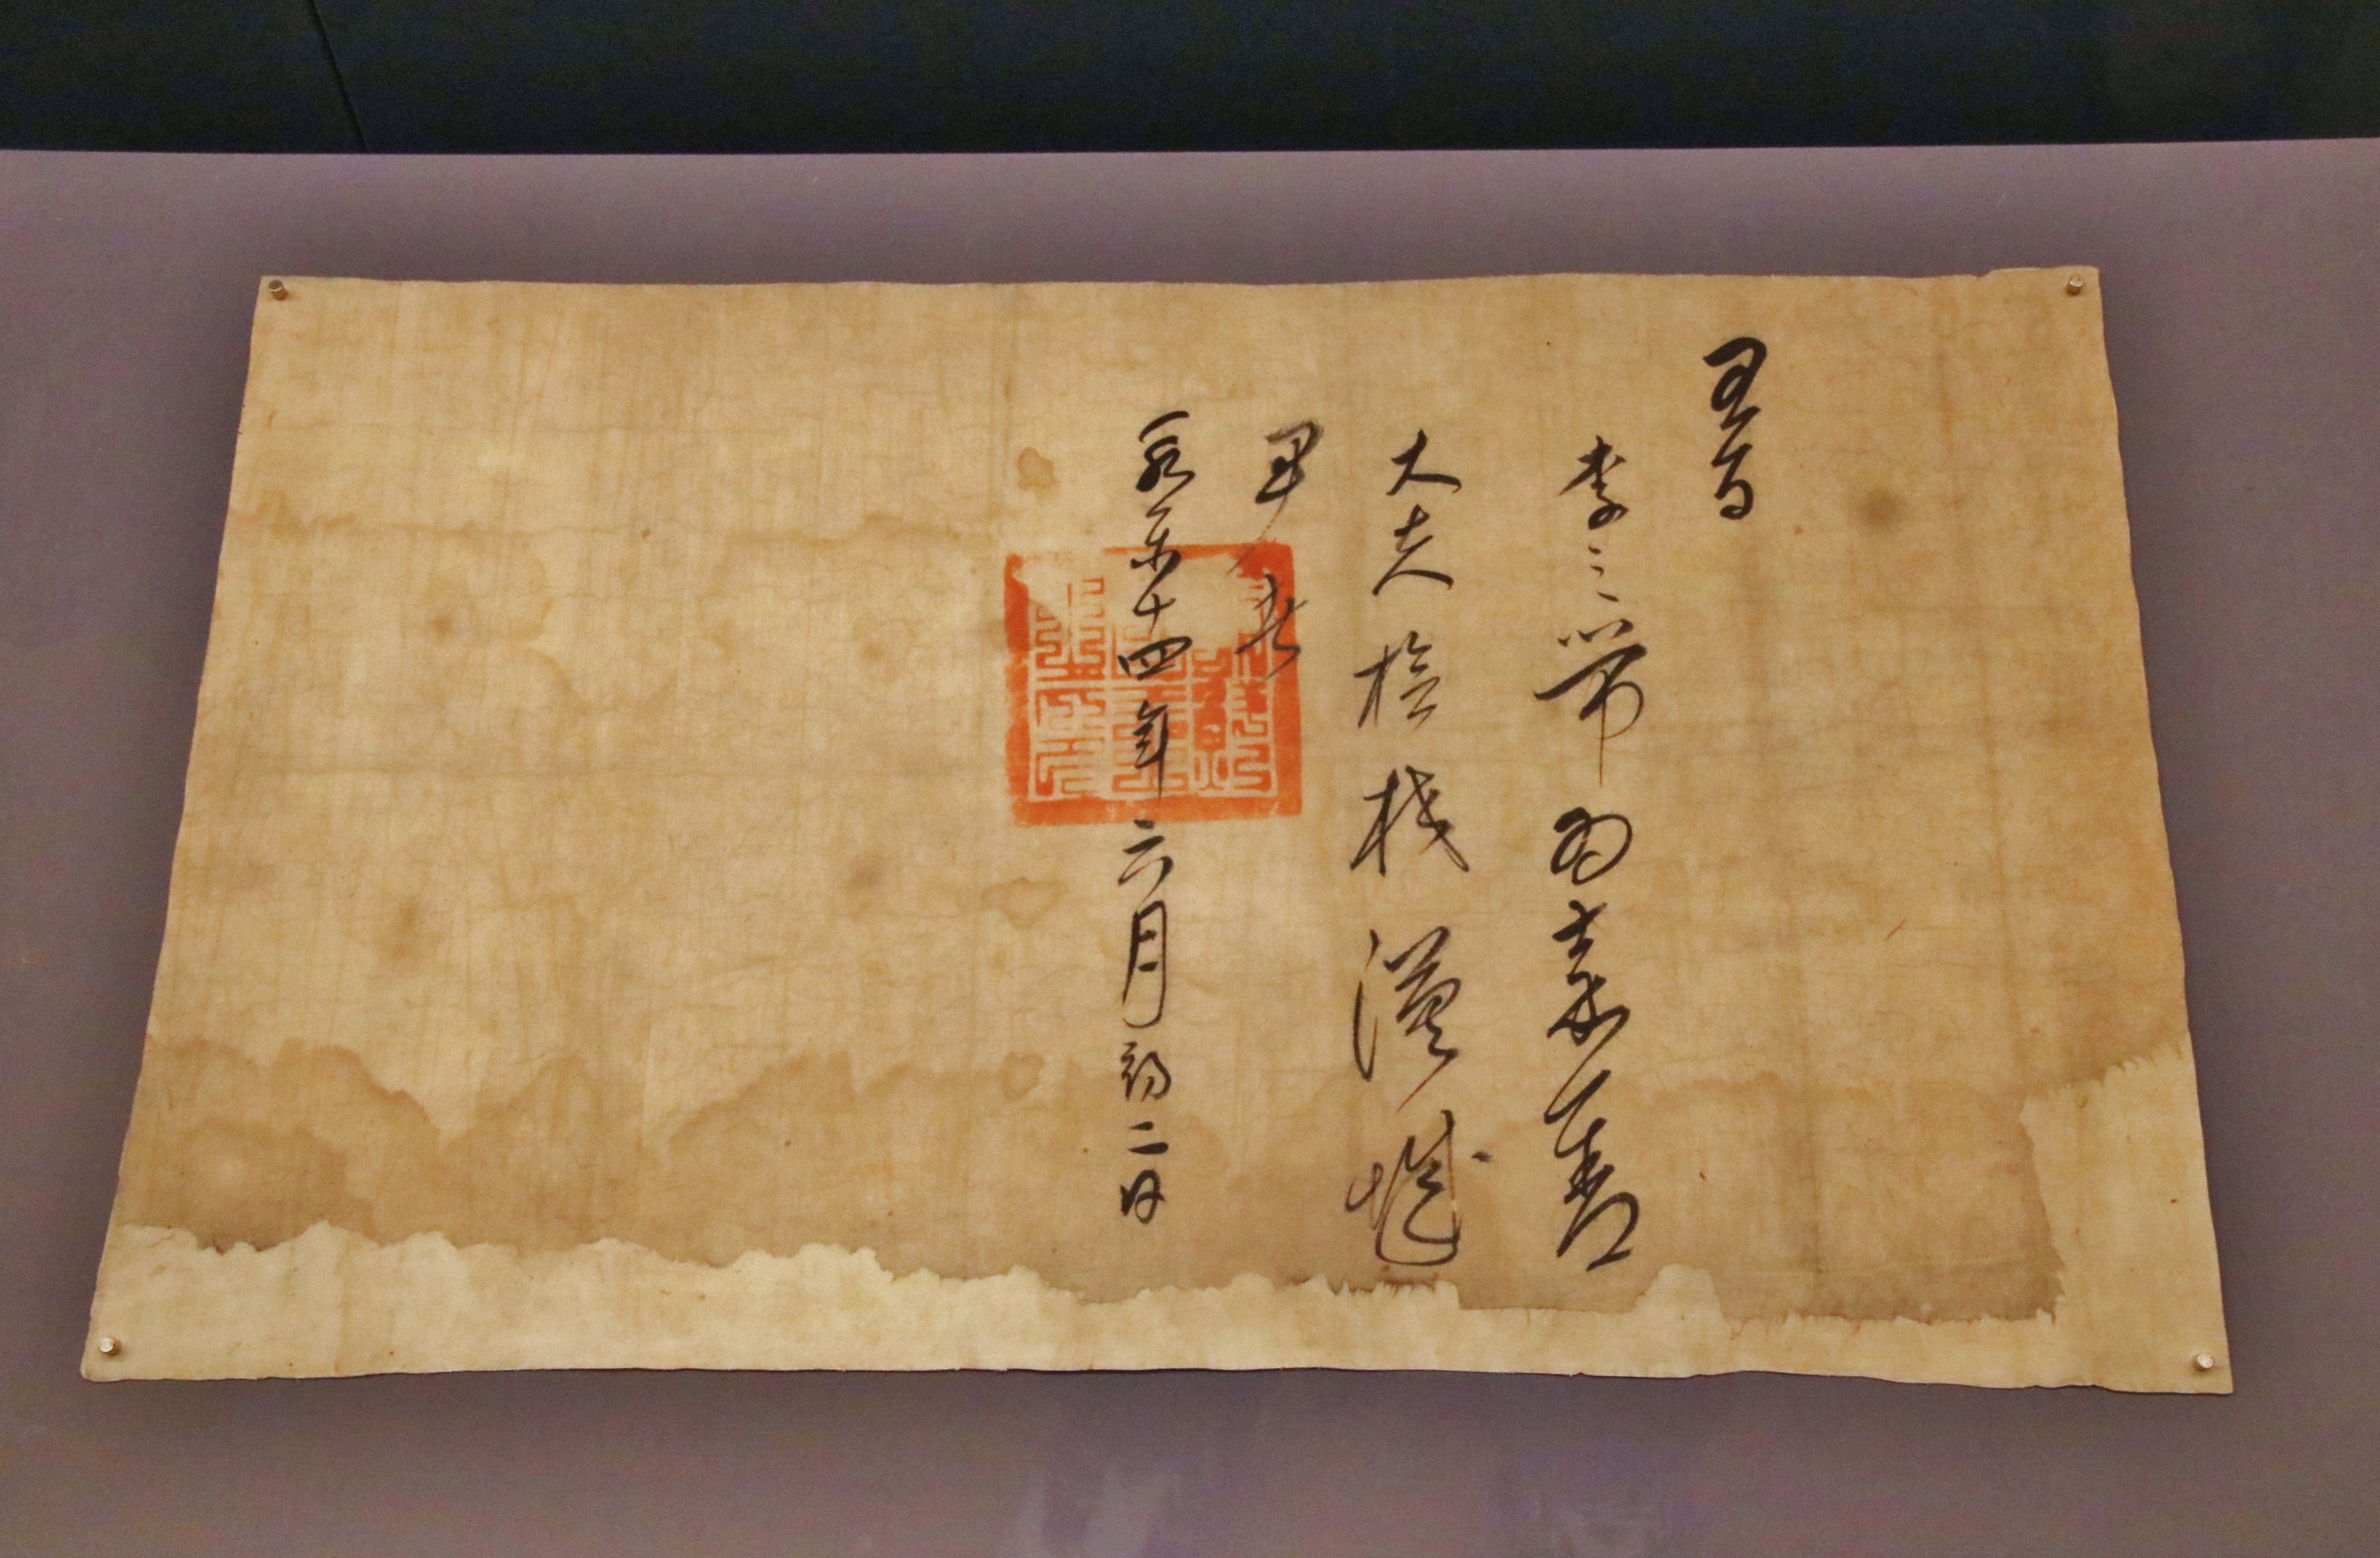 王旨
李之帶爲嘉善
大夫檢校漢城
尹者
永樂十四年六月初二日